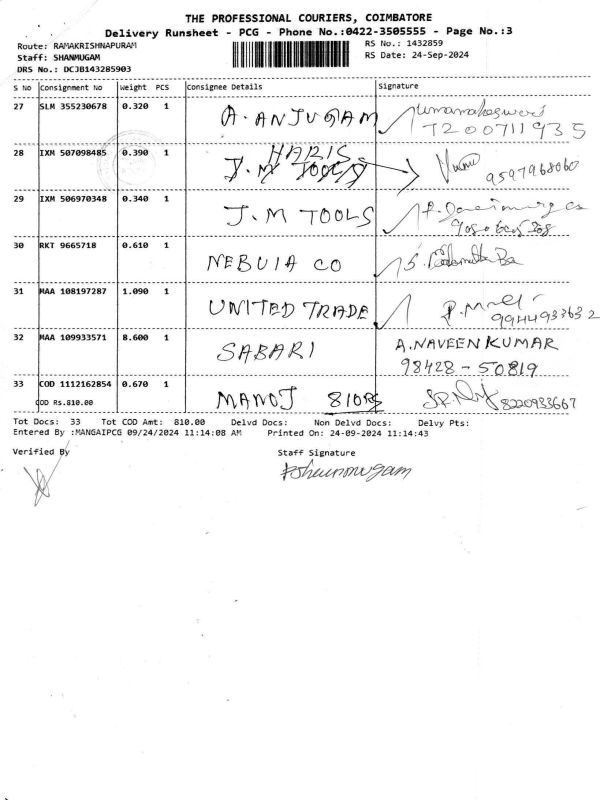 THE PROFESSIONAL COURIERS, COIMBATORE
Delivery Runsheet - PCG - Phone No.:0422-3505555 - Page No.:3
Route: RAMAKRISHNAPURAM
RS No.: 1432859
Staff: SHANMUGAM
RS Date: 24-Sep-2024
DRS No.: DCJB143285903
S No Consignment No Weight PCS Consignee Details Signature
27 SLM 355230678 0.320 1 A. ANJUGAM Umamaheswari
7200711935
28 IXM 507098485 0.390 1 HARIS
J.M TOOLS 9597968060
29 IXM 506970348 0.340 1 J.M TOOLS
30 RKT 9665718 0.610 1 NEBUIA CO
31 MAA 108197287 1.090 1 UNITED TRADE
9944933632
32 MAA 109933571 8.600 1 SABARI A.NAVEEN KUMAR
98428-50819
33 COD 1112162854 0.670 1 MANOJ 810RS 8220933667
COD Rs.810.00
Tot Docs: 33 Tot COD Amt: 810.00 Delvd Docs: Non Delvd Docs: Delvy Pts:
Entered By :MANGAIPCG 09/24/2024 11:14:08 AM Printed On: 24-09-2024 11:14:43
Verified By Staff Signature